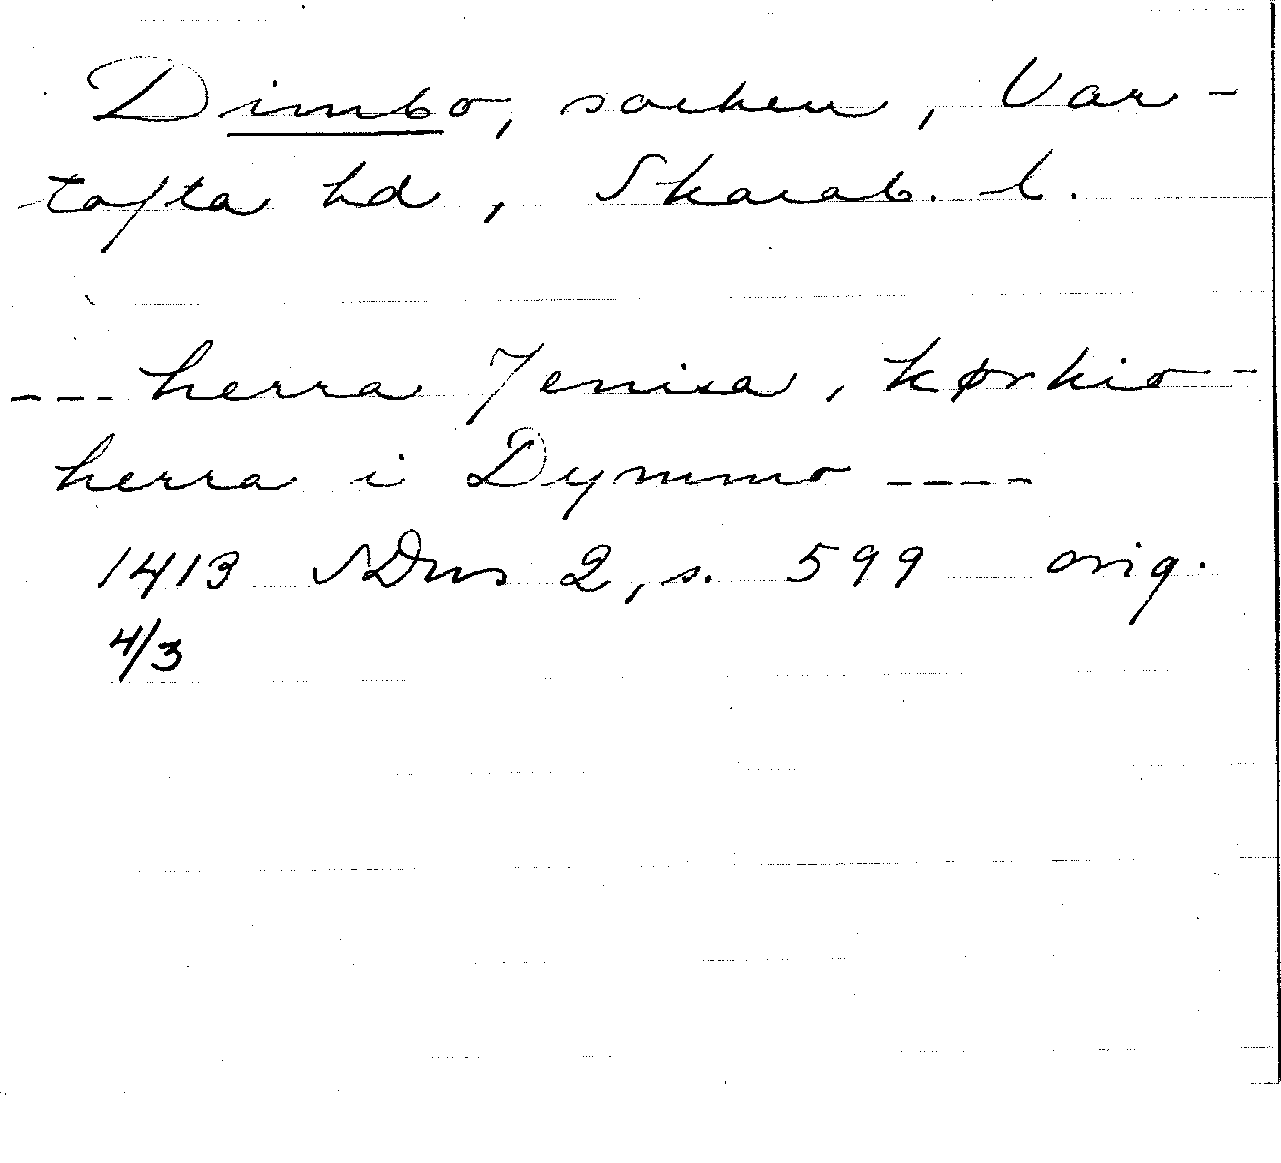 Dimbo, socken, Var-
tofta hd, Skarab. l.
--- herra Jenisa, kørkio-
herra i Dymmo ----
1413 SDns 2, s. 599 orig.
4/3